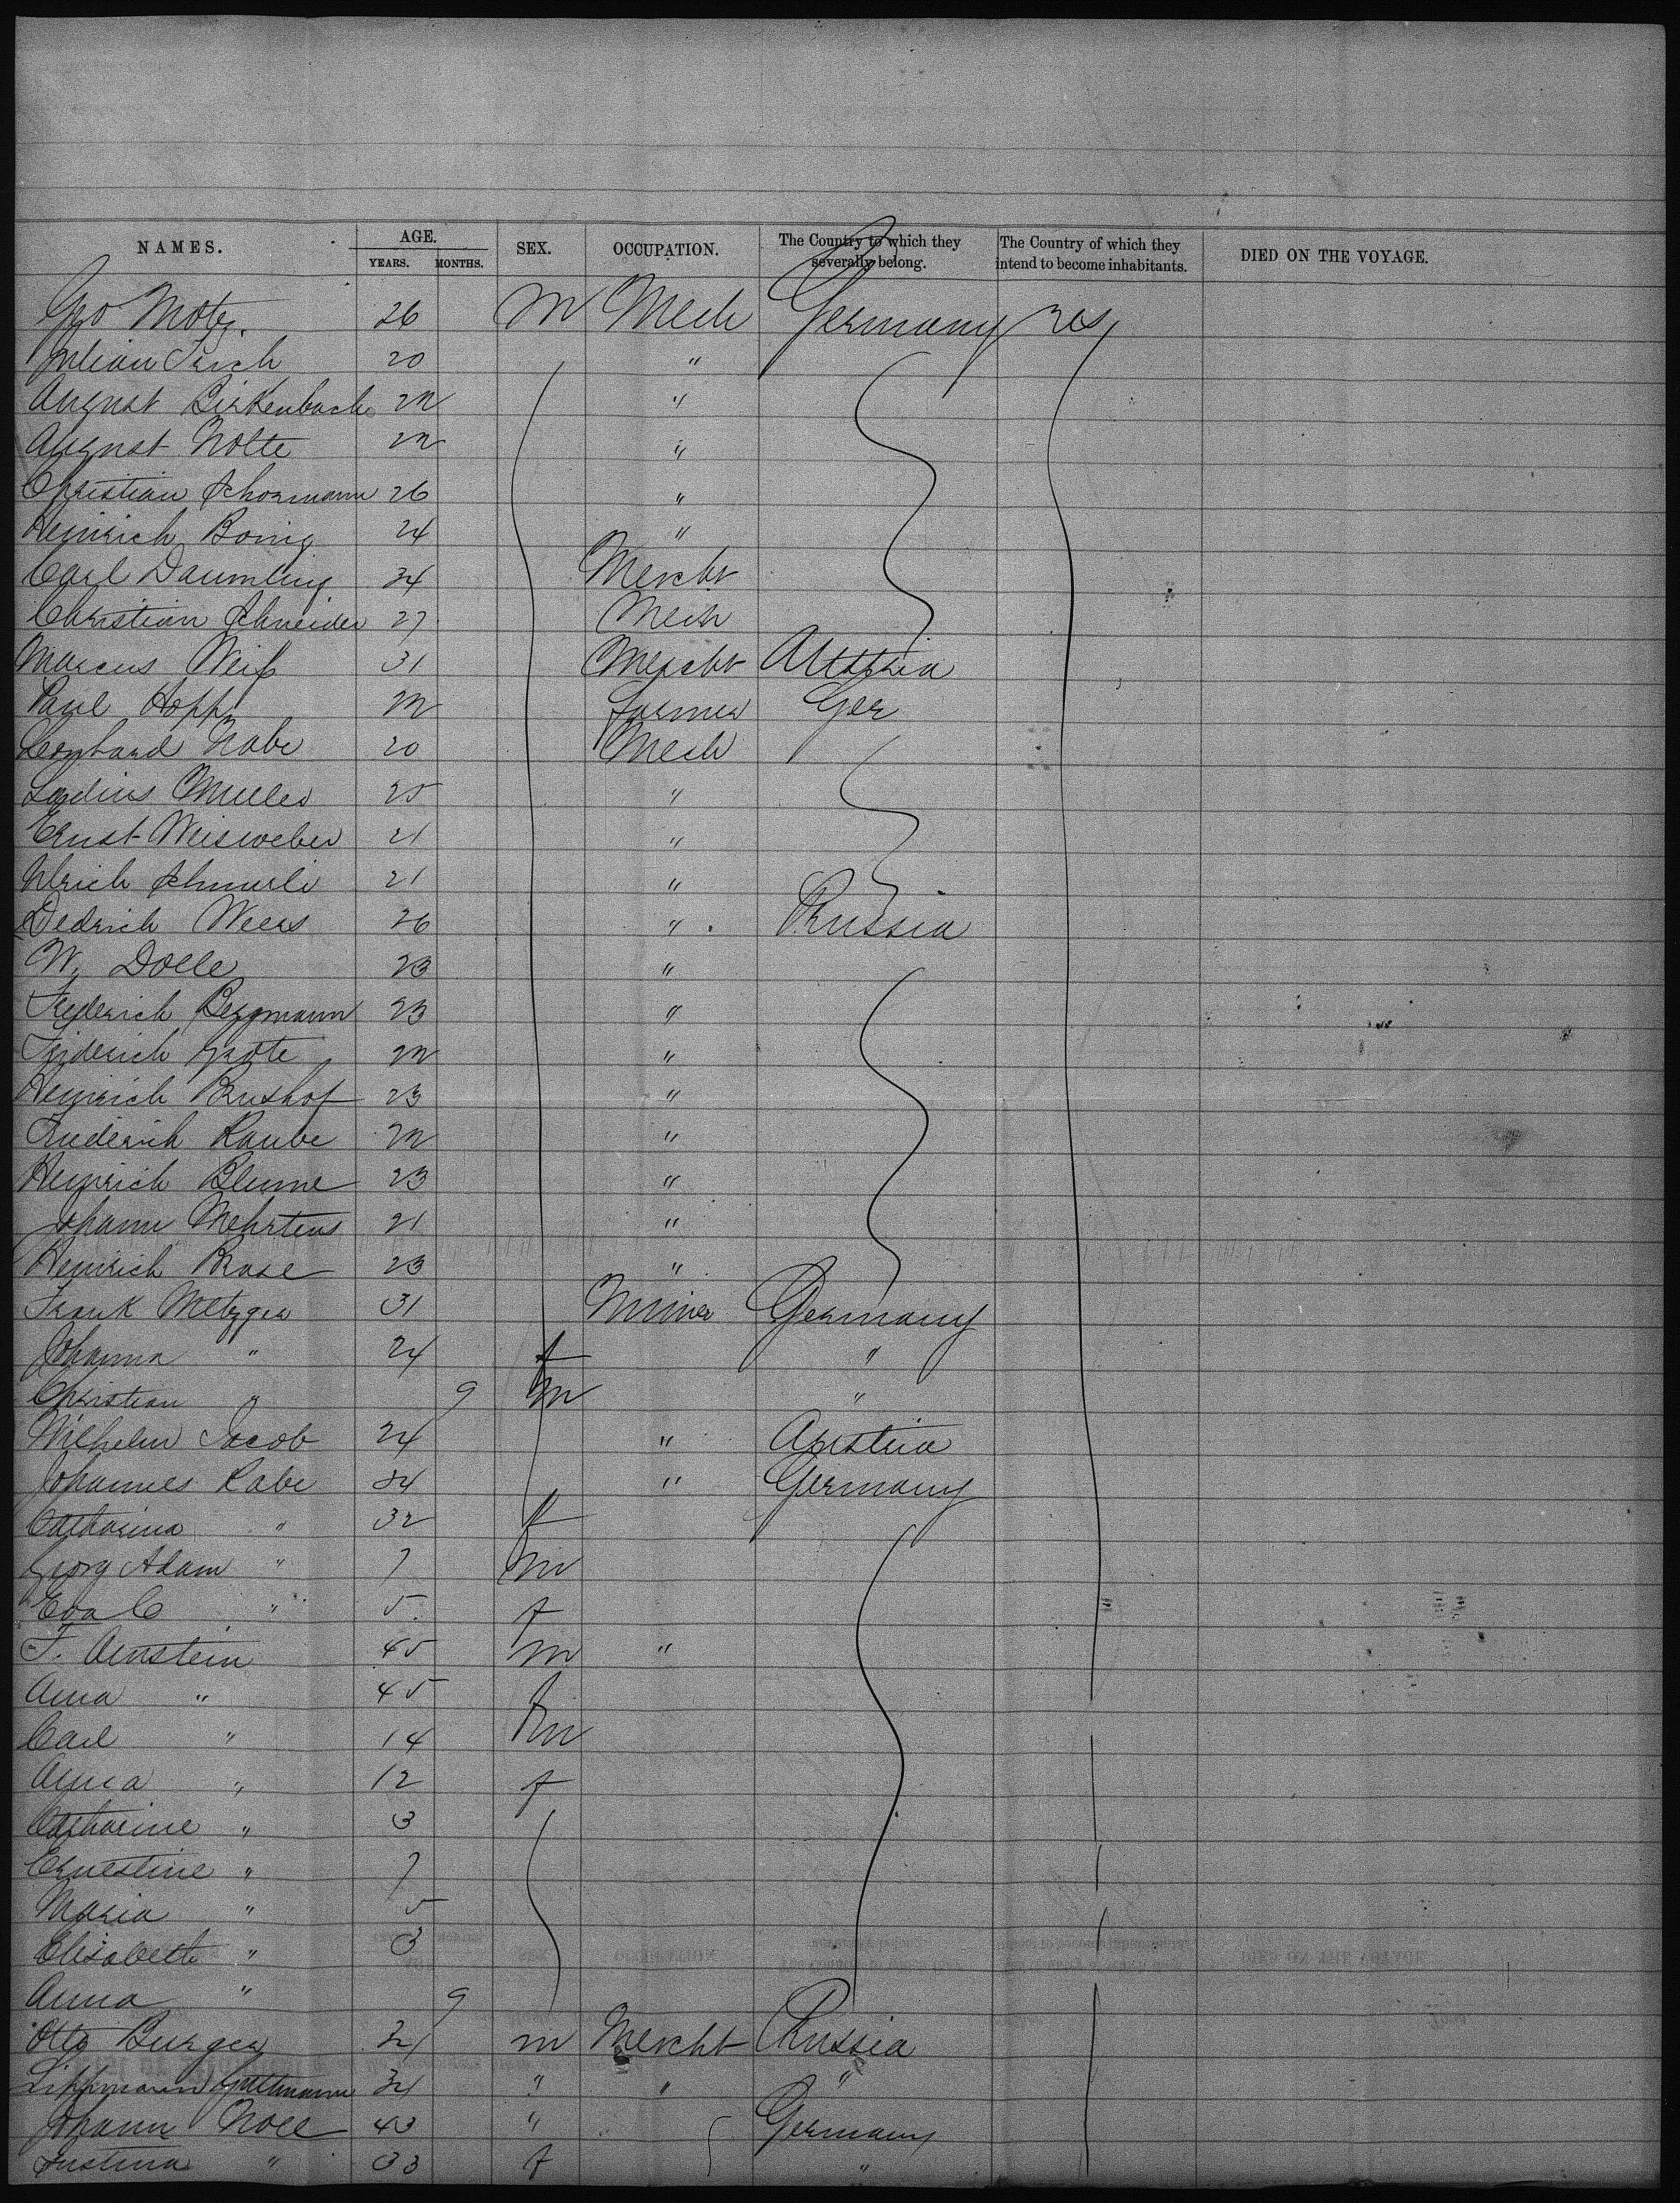 NAMES. AGE. YEARS. MONTHS. SEX. OCCUPATION. The Country to which they severally belong. The Country of which they intend to become inhabitants. DIED ON THE VOYAGE.
Geo Motz. 26 m Mech Germany
Julian 20 "
August Birkenbach 22 "
August Nolte 22 "
Christian Schormann 26 "
Heinrich Bonig 24 "
Carl Daumling 34 Mercht
Christian Schneider 27 Mech
Marcus Weiß 31 Mercht Austria
Paul Hopp 22 Farmer Ger
Leonhard Nabe 20 Mech
Muller 25 "
Ernst Weisweber 21 "
Ulrich 21 "
Diedrich Weers 26 " Prussia
W. Dolle 23 "
Frederich Bergmann 23 "
Friderich Grote 22 "
Heinrich Brushof 23 "
Friederich Raube 22 "
Heinrich Blume 23 "
Johann Mehrtens 21 "
Heinrich Brase 23 "
Frank Metzger 31 Miner Germany
Johanna " 24 f "
Christian " 9 m "
Wilhelm Jacob 24 " Austria
Johannes Rabe 34 " Germany
Catharina " 32 f
Georg Adam " 7 m
Eva C " 5. f
F. Arnstein 45 m "
Anna " 45 f
Carl " 14 m
Anna " 12 f
Catharine " 3
Ernestine " 7
Maria " 5
Elisabeth " 3
Anna " 9
Otto Burger 21 m Mercht Prussia
Lippmann Guttmann 34 " " "
Johann Noll 43 " Germany
Justina " 33 f "